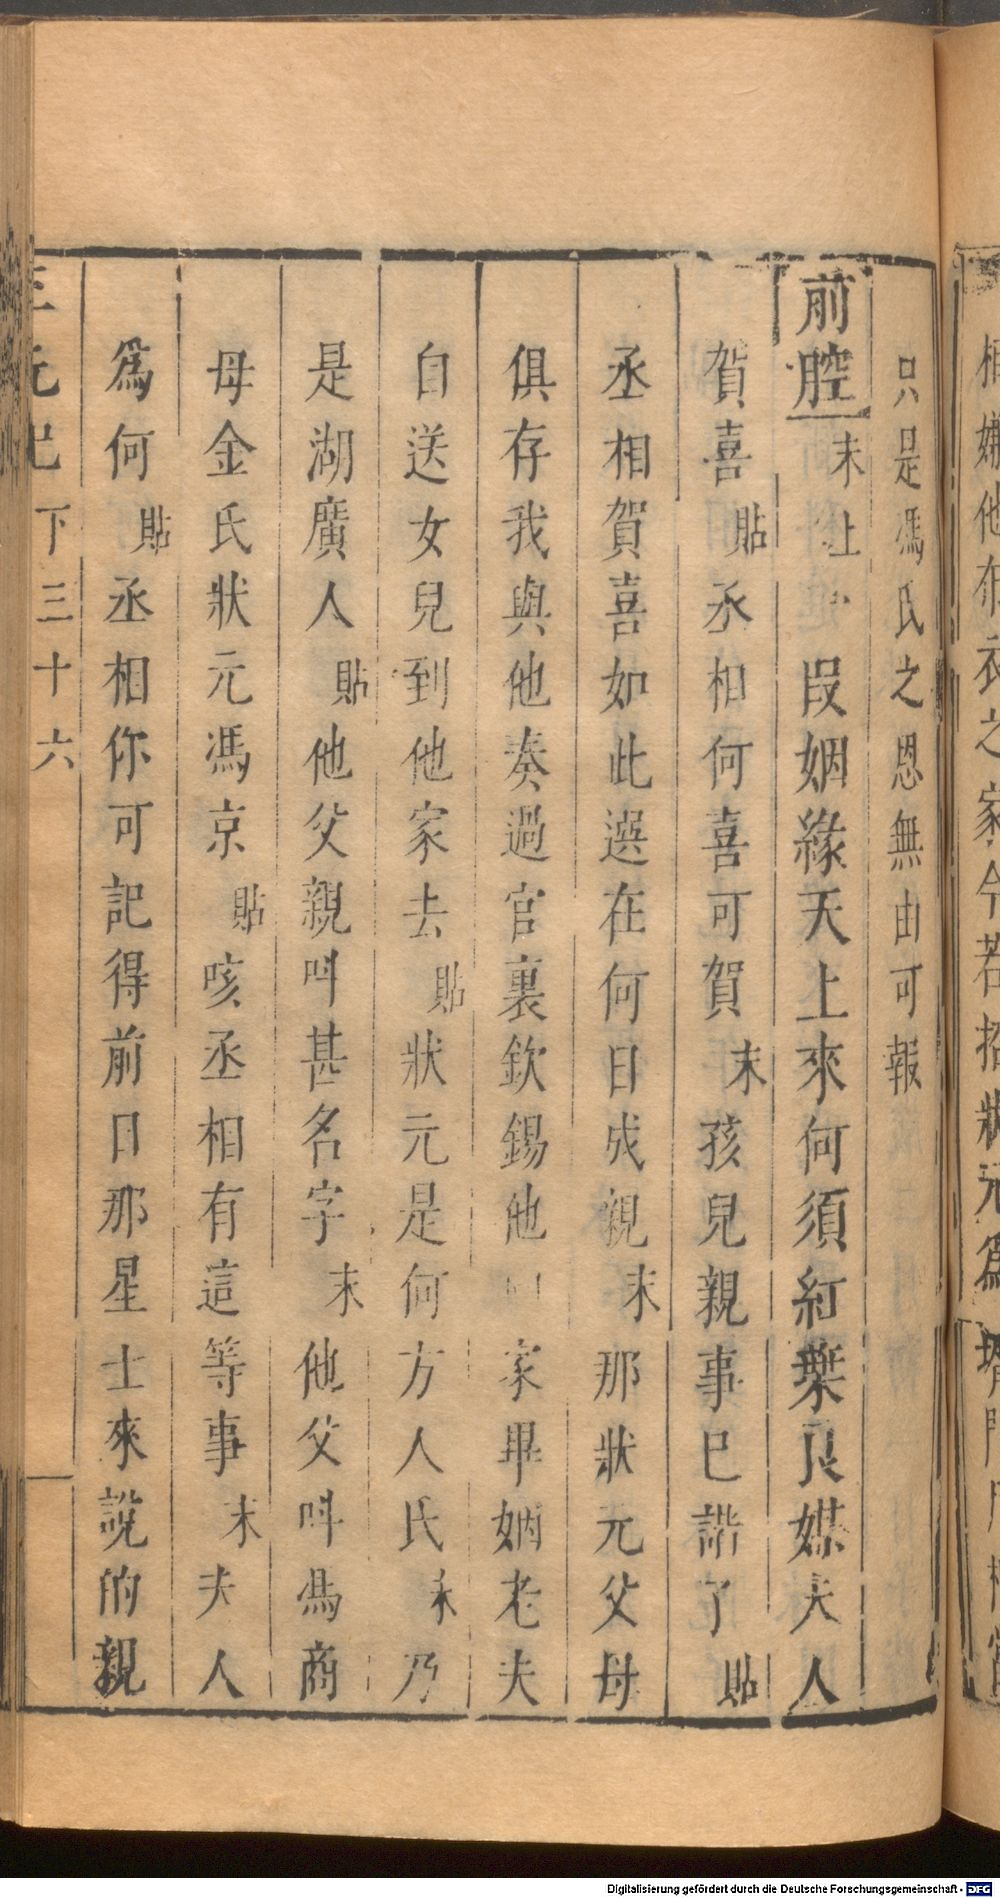 只是馮氏之恩無由可報
前腔末上一段姻緣天上來何須紅葉良媒夫人
賀喜貼丞相何喜可賀末孩兒親事已諧了貼
丞相賀喜如此選在何日成親末那狀元父母
俱存我與他奏過官裏欽錫他 家畢姻老夫
自送女兒到他家去貼狀元是何方人氏末乃
是湖廣人貼他父親呌甚名字末他父呌馮商
母金氏狀元馮京貼咳丞相有這等事末夫人
爲何貼丞相你可記得前日那星士來說的親
三元記 下三十六
Digitalisierung gefördert durch die Deutsche Forschungsgemeinschaft - DFG